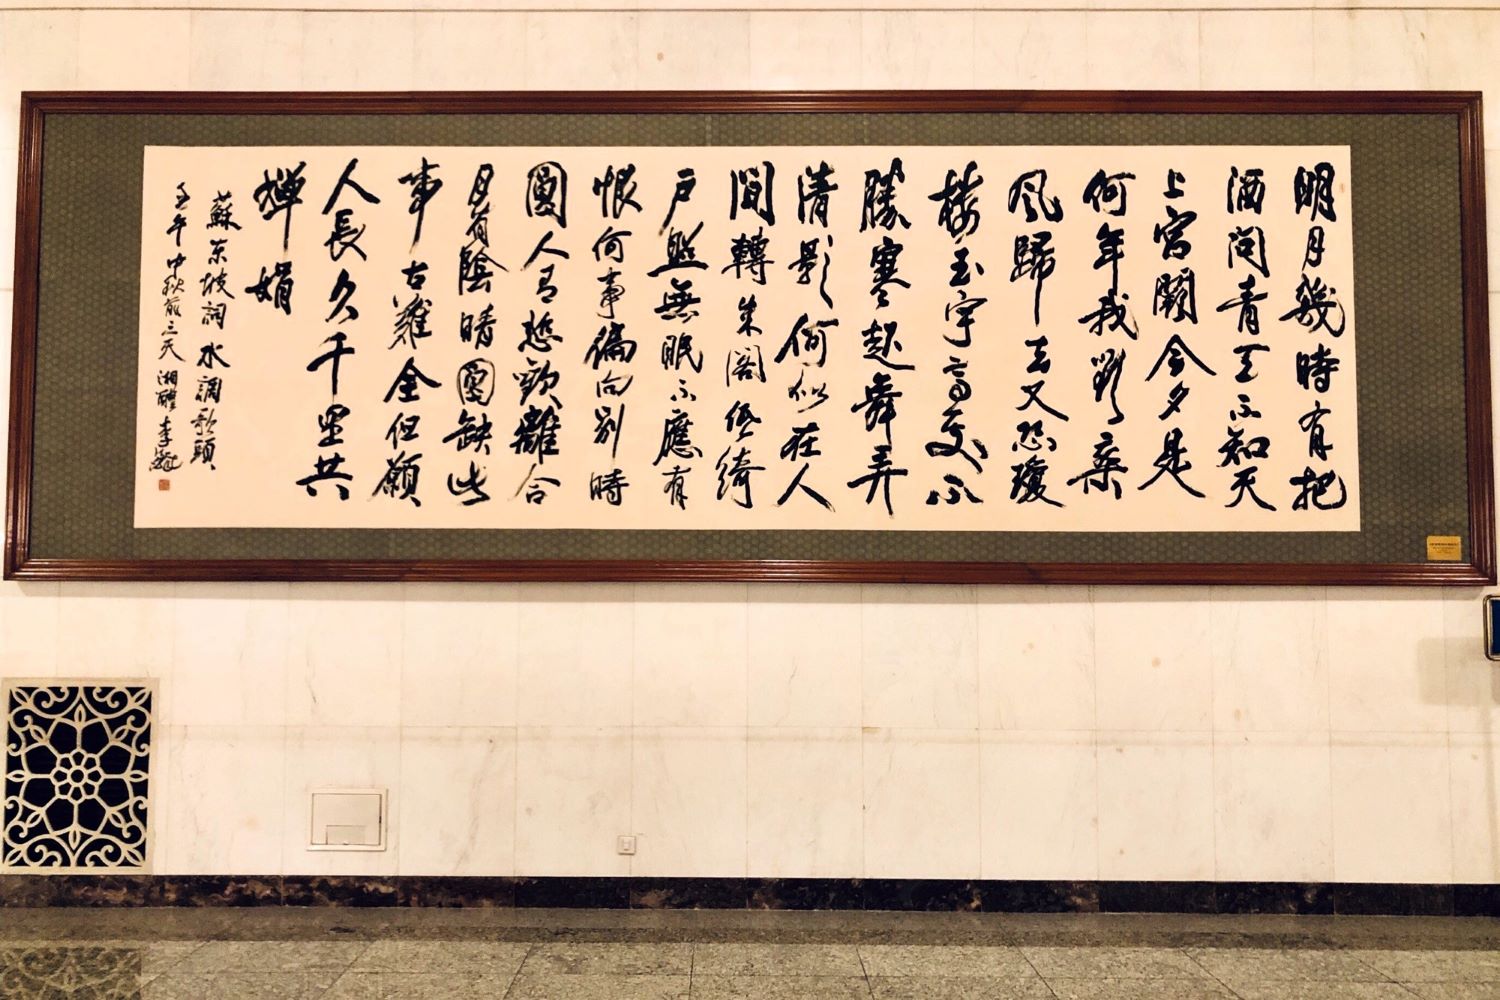 明月幾時有把
酒问青天不知天
上宮闕今夕是
何年我欲乘
風歸去又恐瓊
楼玉宇高處不
勝寒起舞弄
清影何似在人
間轉朱阁低綺
戶照無眠不應有
恨何事偏向别時
圓人有悲歡離合
月有陰晴圆缺此
事古難全但願
人長久千里共
嬋娟
蘇东坡詞水调歌頭
年中秋前三天湘醴李鐸